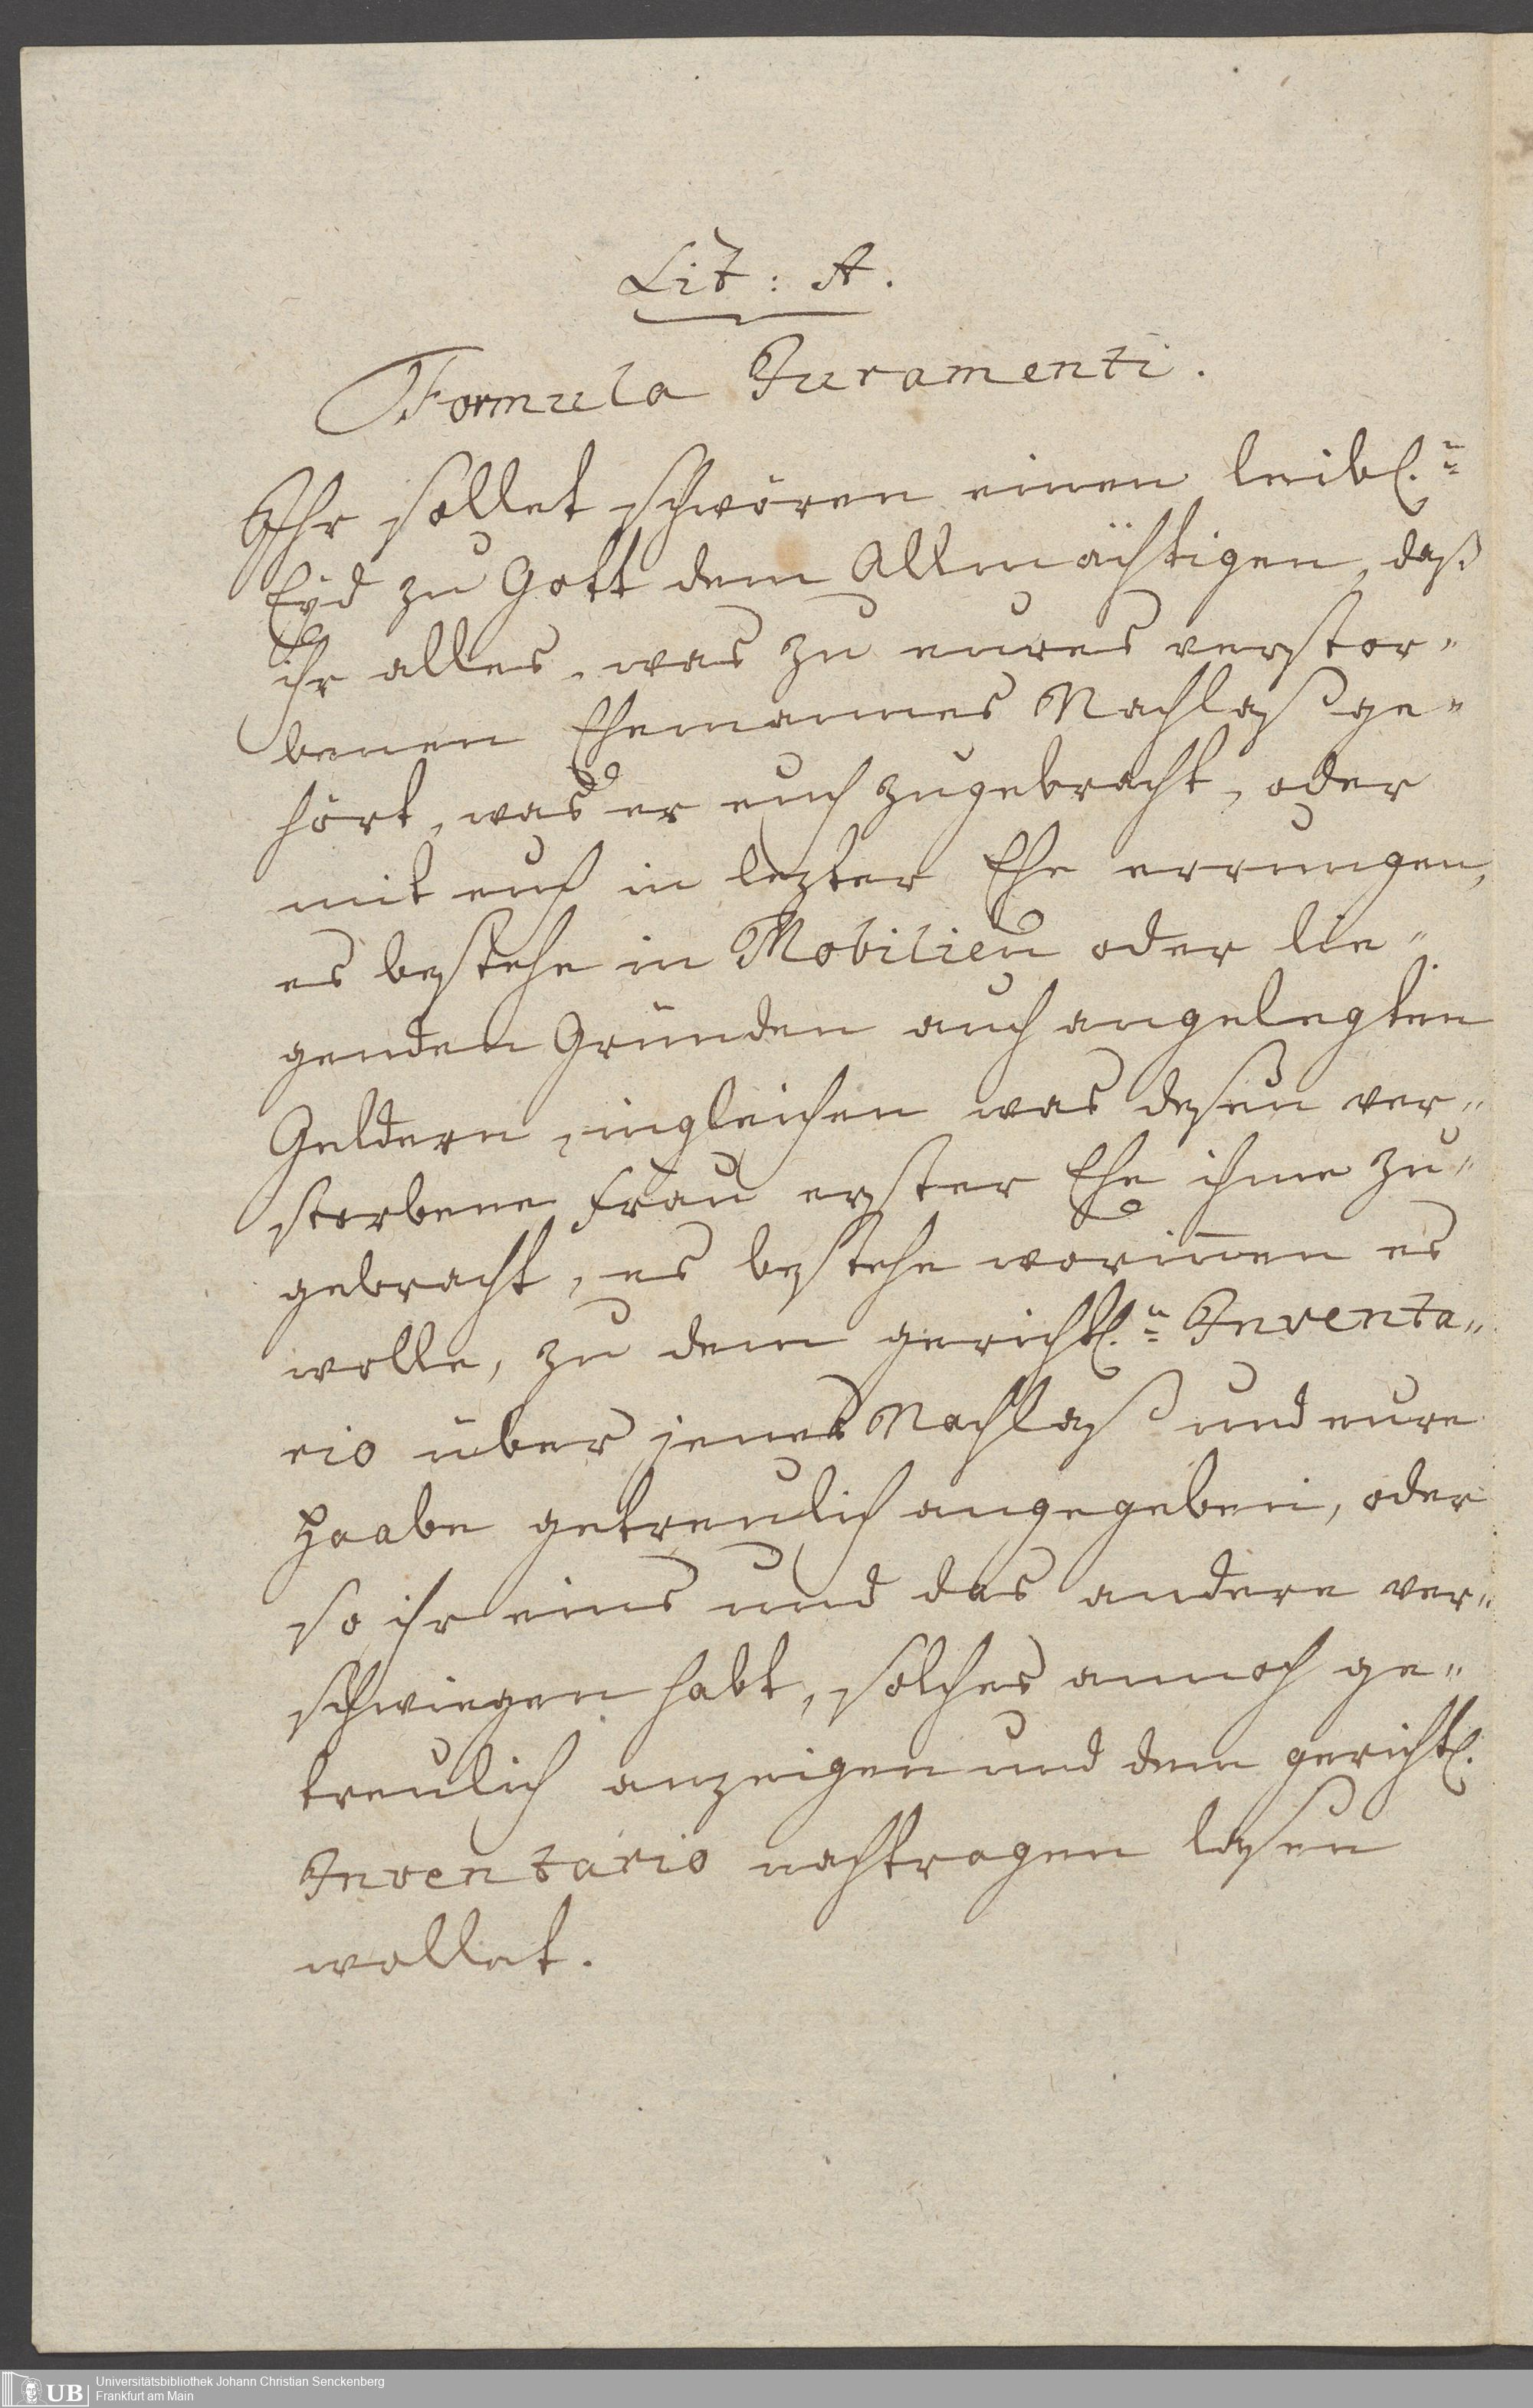 Lit: A.
Formula Juramenti.
Ihr sollet schwören einen leibl.n
Eyd zu Gott dem Allmächtigen, daß
ihr alles, was zu eures verstor-
benen Ehemannes Nachlaß ge-
hört, was er euch zugebracht, oder
mit euch in lezter Ehe errungen,
es bestehe in Mobilien oder lie-
genden Gründen auch angelegten
Geldern, ingleichen was deßen ver-
storbene Frau erster Ehe ihme zu-
gebracht, es bestehe worinnen es
wolle, zu dem gerichtl.n Inventa-
rio über jenes Nachlaß und eure
Haabe getreulich angegeben, oder
so ihr eines und das andere ver-
schwiegen habt, solches annoch ge-
treulich anzeigen und dem gerichtl.
Inventario nachtragen laßen
wollet.
UB
Universitätsbibliothek Johann Christian Senckenberg
Frankfurt am Main